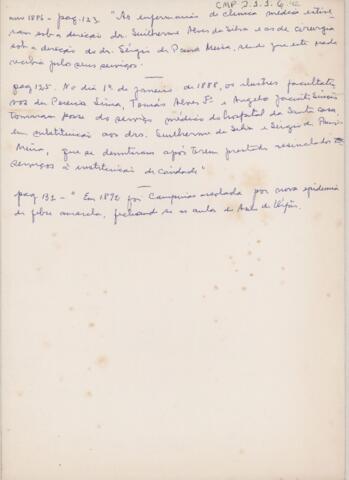 CMP 2.1.1.6
ano 1886 - pag. 123 "As enfermarias de clinica médica estive-
ram sob a direção do dr. Guilherme Alves da Silva e as de cirurgia
sob a direção do dr. Sérgio de Paula Meira, sendo que este nada
recebia pelos seus serviços.
pag 125. No dia 1º de janeiro de 1888, os ilustres facultati-
vos dr Pereira Lima, Tomás Alves Fº e Angelo Jacinto Simões
tomaram posse do serviço médico do hospital da Santa Casa,
em substituição aos drs. Guilherme da Silva e Sérgio de Paula
Meira, que se demitiram após terem prestado
serviços à instituição de caridade"
pag 131 - "Em 1890 foi Campinas assolada por nova epidemia
de febre amarela, fechando-se as aulas e Asilo de Órfãs.